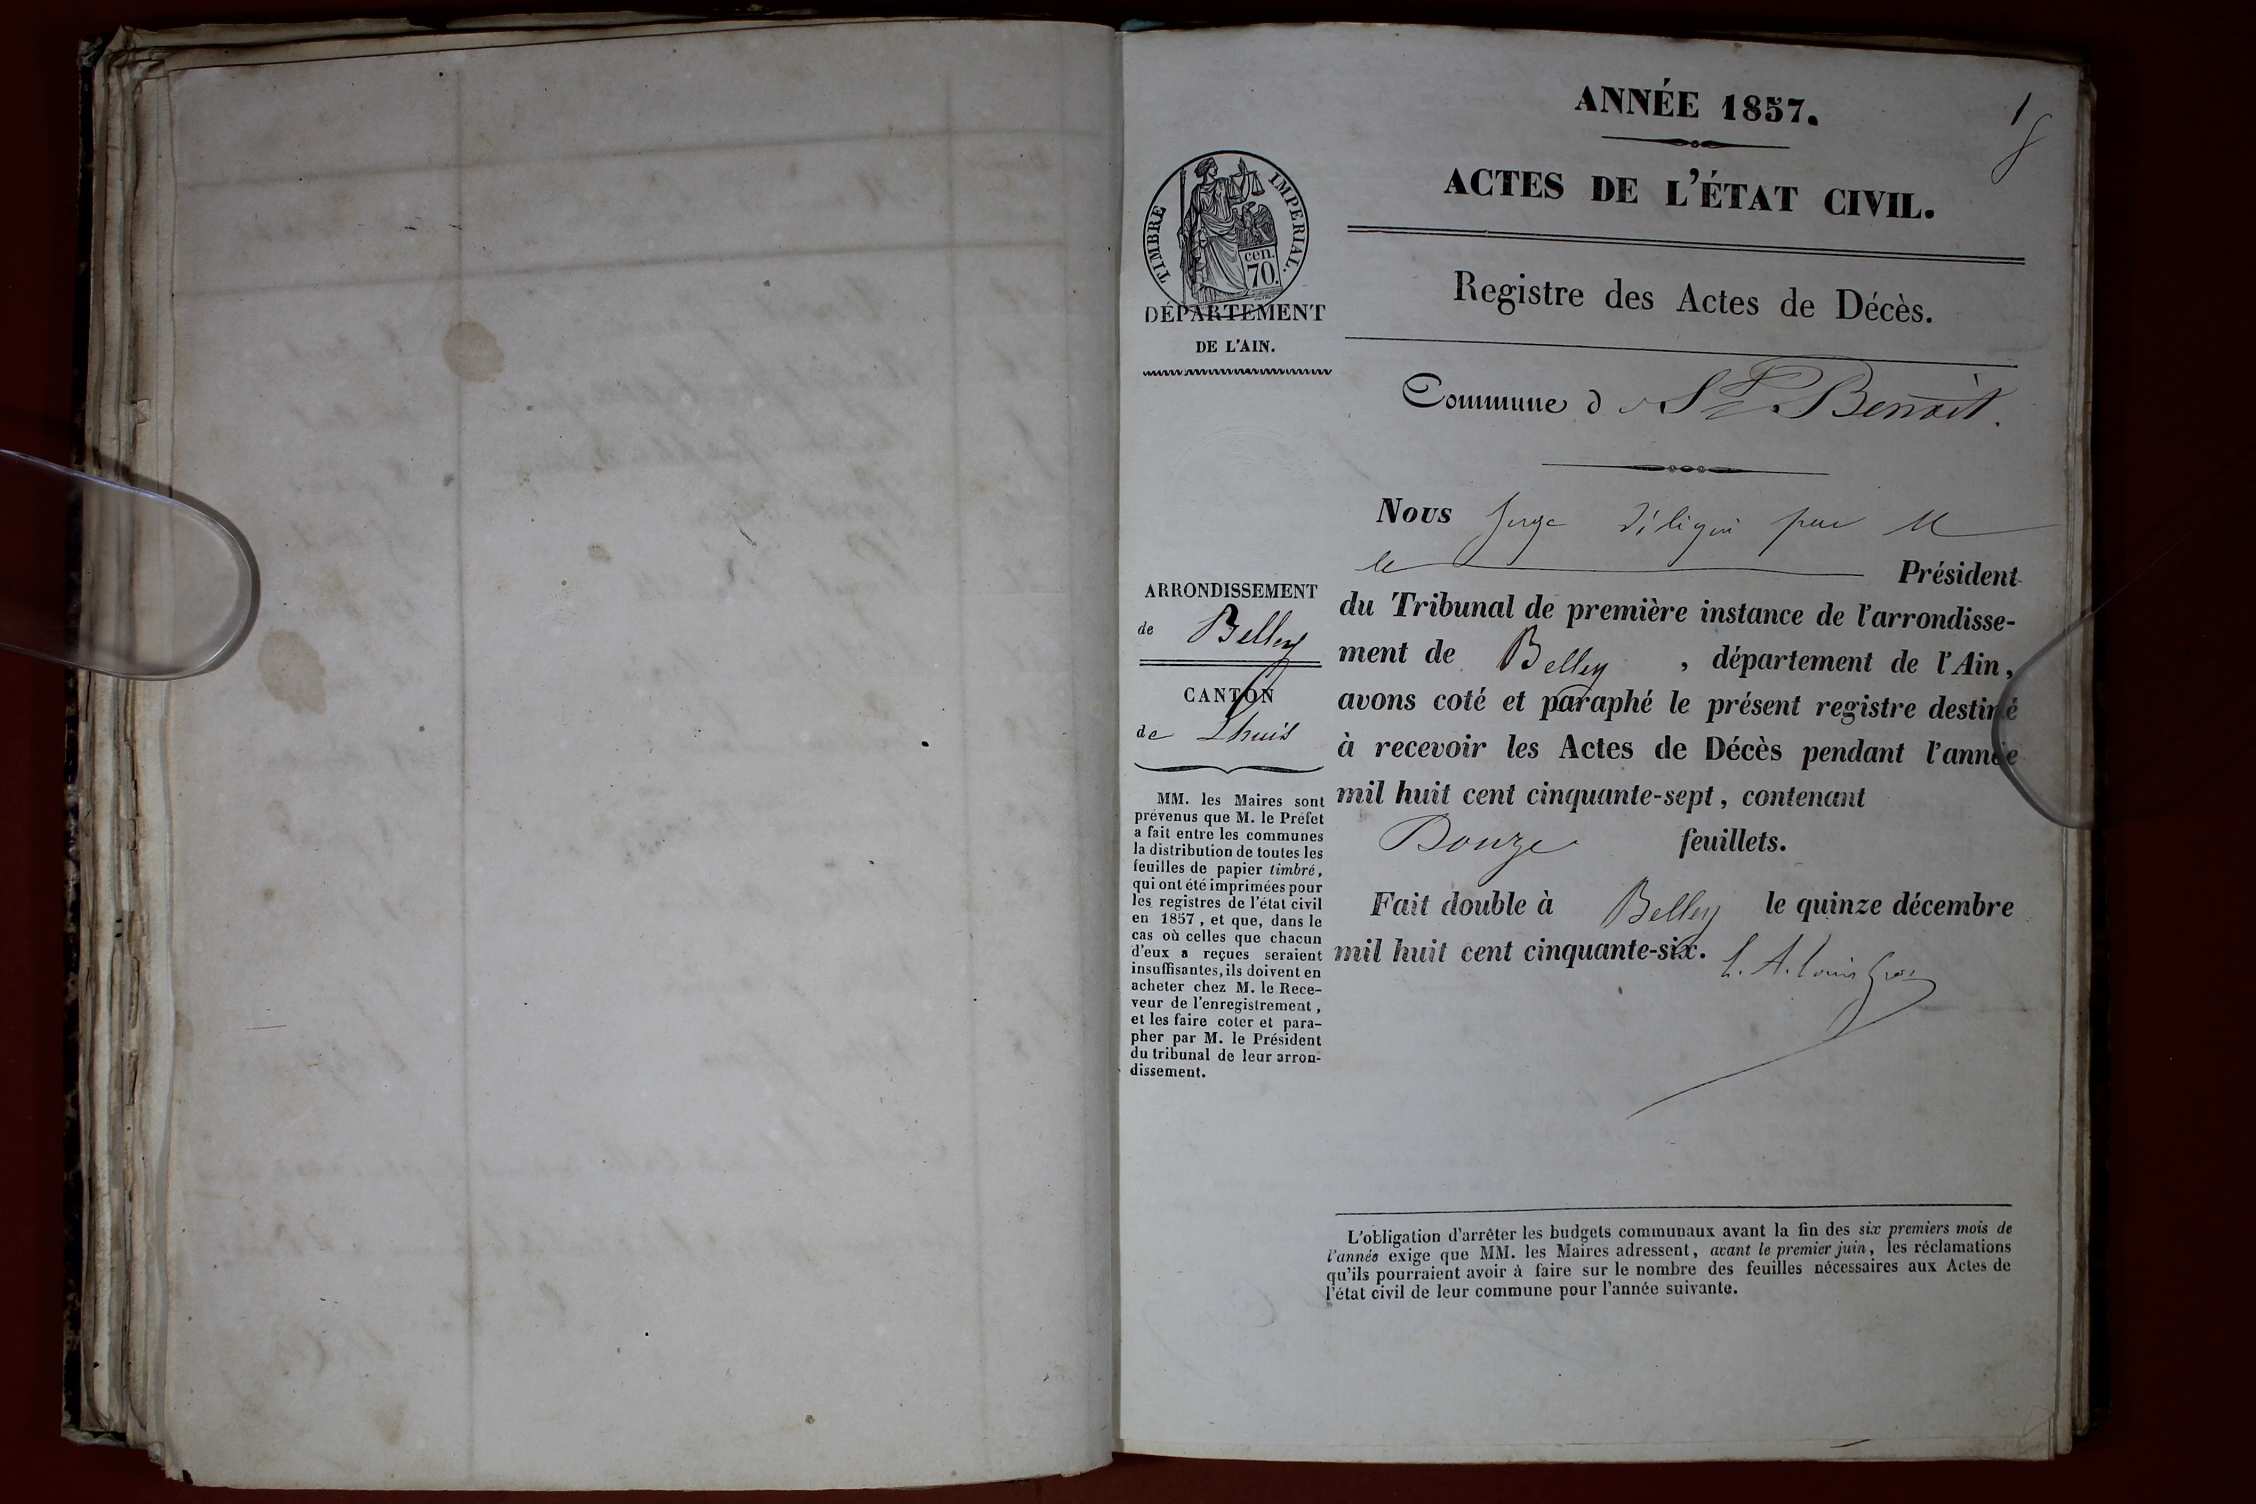 ANNÉE 1857.
1
ACTES DE L'ÉTAT CIVIL.
TIMBRE IMPERIAL.
cen.
70.
Registre des Actes de Décès.
DÉPARTEMENT
DE L'AIN.
Commune d St Benoit.
ARRONDISSEMENT
de Belley
CANTON
de Lhuis
MM. les Maires sont
prévenus que M. le Préfet
a fait entre les communes
la distribution de toutes les
feuilles de papier timbré,
qui ont été imprimées pour
les registres de l'état civil
en 1857, et que, dans le
cas où celles que chacun
d'eux a reçues seraient
insuffisantes, ils doivent en
acheter chez M. le Rece-
veur de l'enregistrement,
et les faire coter et para-
pher par M. le Président
du tribunal de leur arron-
dissement.
Nous Juge délégué par M
le Président
du Tribunal de première instance de l'arrondisse-
ment de Belley, département de l'Ain,
avons coté et paraphé le présent registre destiné
à recevoir les Actes de Décès pendant l'année
mil huit cent cinquante-sept, contenant
Douze feuillets.
Fait double à Belley le quinze décembre
mil huit cent cinquante-six.
L'obligation d'arrêter les budgets communaux avant la fin des six premiers mois de
l'année exige que MM. les Maires adressent, avant le premier juin, les réclamations
qu'ils pourraient avoir à faire sur le nombre des feuilles nécessaires aux Actes de
l'état civil de leur commune pour l'année suivante.